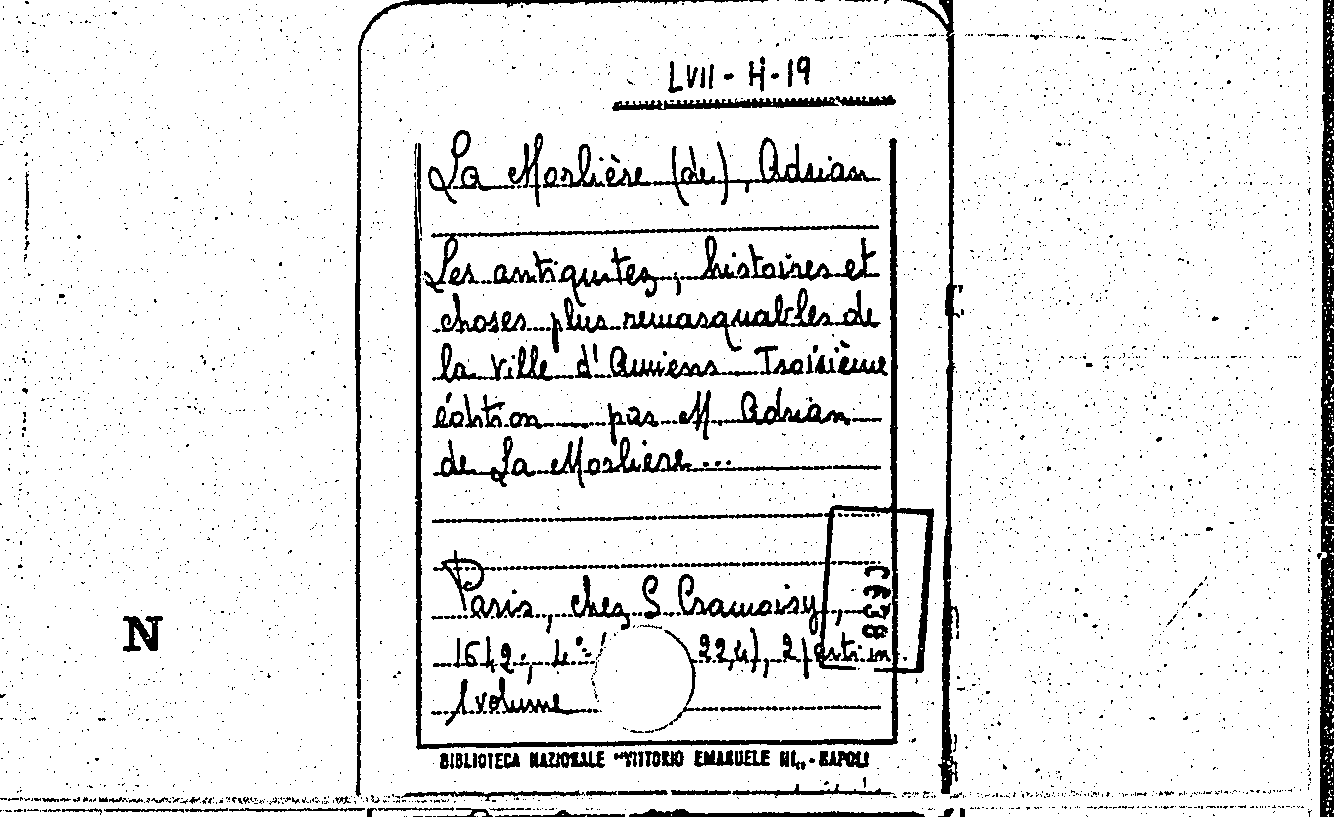 LVII - H - 19
La Morlière (de), Adrian
Les antiquitez, histoires et
choses plus remarquables de
la ville d'Amiens Troisième
édition par M. Adrian
de La Morlière...
Paris, chez S. Cramoisy,
1642; 4° ( 224), 2 parti in
1 volume
N
BIBLIOTECA NAZIONALE "VITTORIO EMANUELE III„ - NAPOLI